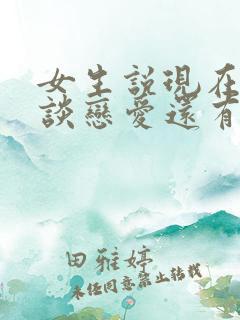 女生説現在
談戀愛還有
田雅婷
未经同意禁止转载